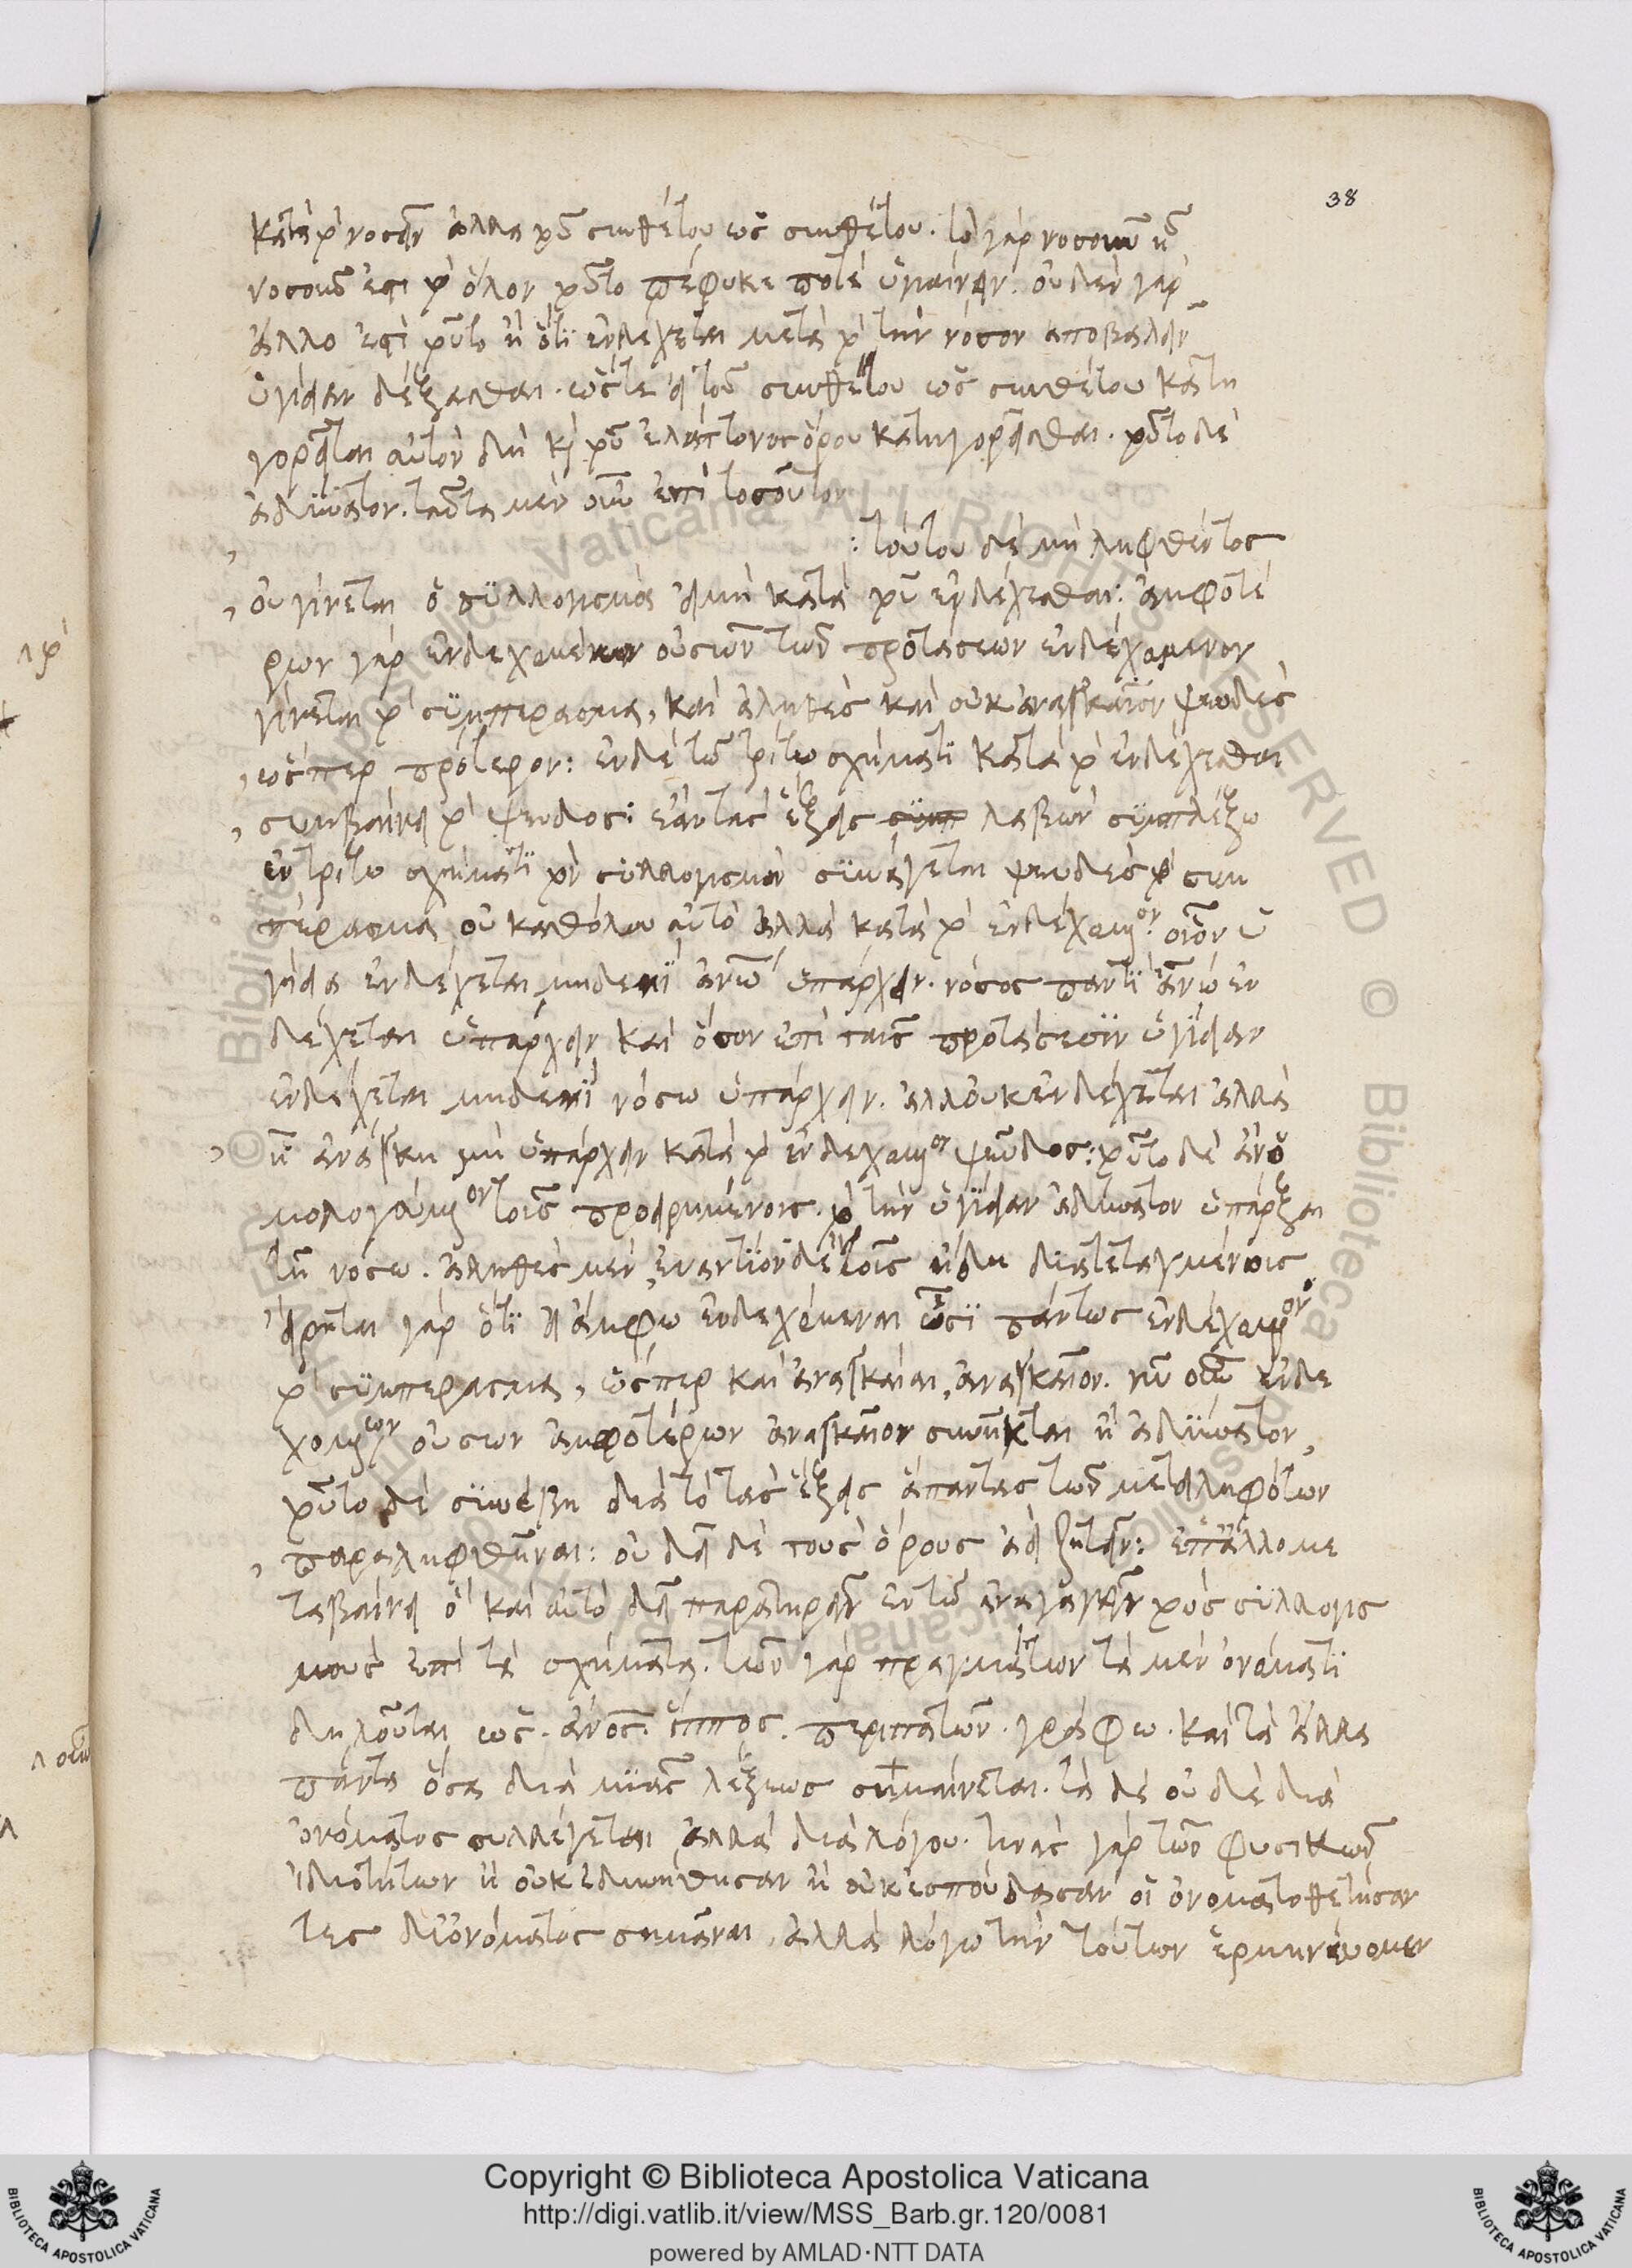 38
κατὰ τὸ νοσεῖν ἀλλὰ τοῦ συνθέτου ὡς συνθέτου. τὸ γὰρ νοσοῦν ᾗ
νοσοῦν ἐστι τὸ ὅλον τοῦτο πέφυκε ποτὲ ὑγιαίνειν. οὐδὲν γὰρ
ἄλλο ἐστὶ τοῦτο ἢ ὅτι ἐνδέχεται μετὰ τὸ τὴν νόσον ἀποβαλεῖν
ὑγίειαν δέξασθαι. ὥστε εἰ τοῦ συνθέτου ὡς συνθέτου κατη
γορεῖται αὐτὸν δὴ κὶ τοῦ ἐλάττονος ὅρου κατηγορεῖσθαι. τοῦτο δὲ
ἀδύνατον. ταῦτα μὲν οὖν ἐπὶ τοσοῦτον
: τούτου δὲ μὴ ληφθέντος
, οὐ γίνεται ὁ συλλογισμὸς εἰ μὴ κατὰ τοῦ ἐνδέχεσθαι: ἀμφοτέ
ρων γὰρ ἐνδεχομένων οὐσῶν τῶν προτάσεων ἐνδεχόμενον
γίνεται τὸ συμπέρασμα, καὶ ἀληθὲς καὶ οὐκ ἀναγκαῖον ψευδὲς
, ὥσπερ πρότερον: ἐν δὲ τῷ τρίτῳ σχήματι κατὰ τὸ ἐνδέχεσθαι
, συμβαίνει τὸ ψεῦδος: ἐὰν τὰς ἕξεις λαβὼν συμπλέξω
ἐν τρίτῳ σχήματι τὸν συλλογισμὸν συνάγεται ψευδὲς τὸ συμ
πέρασμα οὐ καθόλου αὐτὸ ἀλλὰ κατὰ τὸ ἐνδεχόμενον. οἷον ὑ
γίεια ἐνδέχεται μηδενὶ ἀνω ὑπάρχειν. νόσος παντὶ ἀνω ἐν
δέχεται ὑπάρχειν καὶ ὅσον ἐπὶ ταῖς προτάσεσιν ὑγίειαν
ἐνδέχεται μηδενὶ νόσῳ ὑπάρχειν. ἀλλ οὐκ ἐνδέχεται ἀλλὰ
, ἢ ἀνάγκη μὴ ὑπάρχειν κατὰ τὸ ἐνδεχόμενον ψεῦδος: τοῦτο δὲ ἀνο
μολογούμενον τοῖς προειρημένοις. τὸ τὴν ὑγίειαν ἀδύνατον ὑπάρξαι
τῇ νόσῳ. ἀληθὲς μὲν, ἐναντίον δὲ τοῖς ἤδη διατεταγμένοις
εἴρηται γὰρ ὅτι εἰ ἄμφω ἐνδεχόμεναι ὦσι πάντως ἐνδεχόμενον
τὸ συμπέρασμα, ὥσπερ καὶ ἀναγκαῖαι, ἀναγκαῖον. νῦν οὖν ἐνδε
χομένων οὐσῶν ἀμφοτέρων ἀναγκαῖον συνῆκται ἢ ἀδύνατον,
τοῦτο δὲ συνέβη διὰ τὸ τὰς ἕξεις ἁπάντας τῶν μετειληφότων
, παραληφθῆναι: οὐ δεῖ δὲ τοὺς ὅρους ἀεὶ ζητεῖν: ἐπ ἄλλο με
ταβαίνει ὃ καὶ αὐτὸ δεῖ παρατηρεῖν ἐν τῷ ἀναγαγεῖν τοὺς συλλογισ
μοὺς ἐπὶ τὰ σχήματα. τῶν γὰρ πραγμάτων τὰ μὲν ὀνόματι
δηλοῦται ὡς. ἀνος. ἵππος. περιπατῶν. γράφω. καὶ τὰ ἄλλα
πάντα ὅσα διὰ μιᾶς λέξεως σημαίνεται. τὰ δὲ οὐδὲ διὰ
ὀνόματος συλλέγεται ἀλλὰ διὰ λόγου. τινὰς γὰρ τῶν φυσικῶν
ἰδιοτήτων ἢ οὐκ ἐδυνήθησαν ἢ οὐκ ἐσπούδασαν οἱ ὀνοματοθετήσαν
τες δι ὀνόματος σημᾶναι, ἀλλὰ λόγῳ τὴν τούτων ἑρμηνεύομεν
Copyright © Biblioteca Apostolica Vaticana
http://digi.vatlib.it/view/MSS_Barb.gr.120/0081
powered by AMLAD·NTT DATA